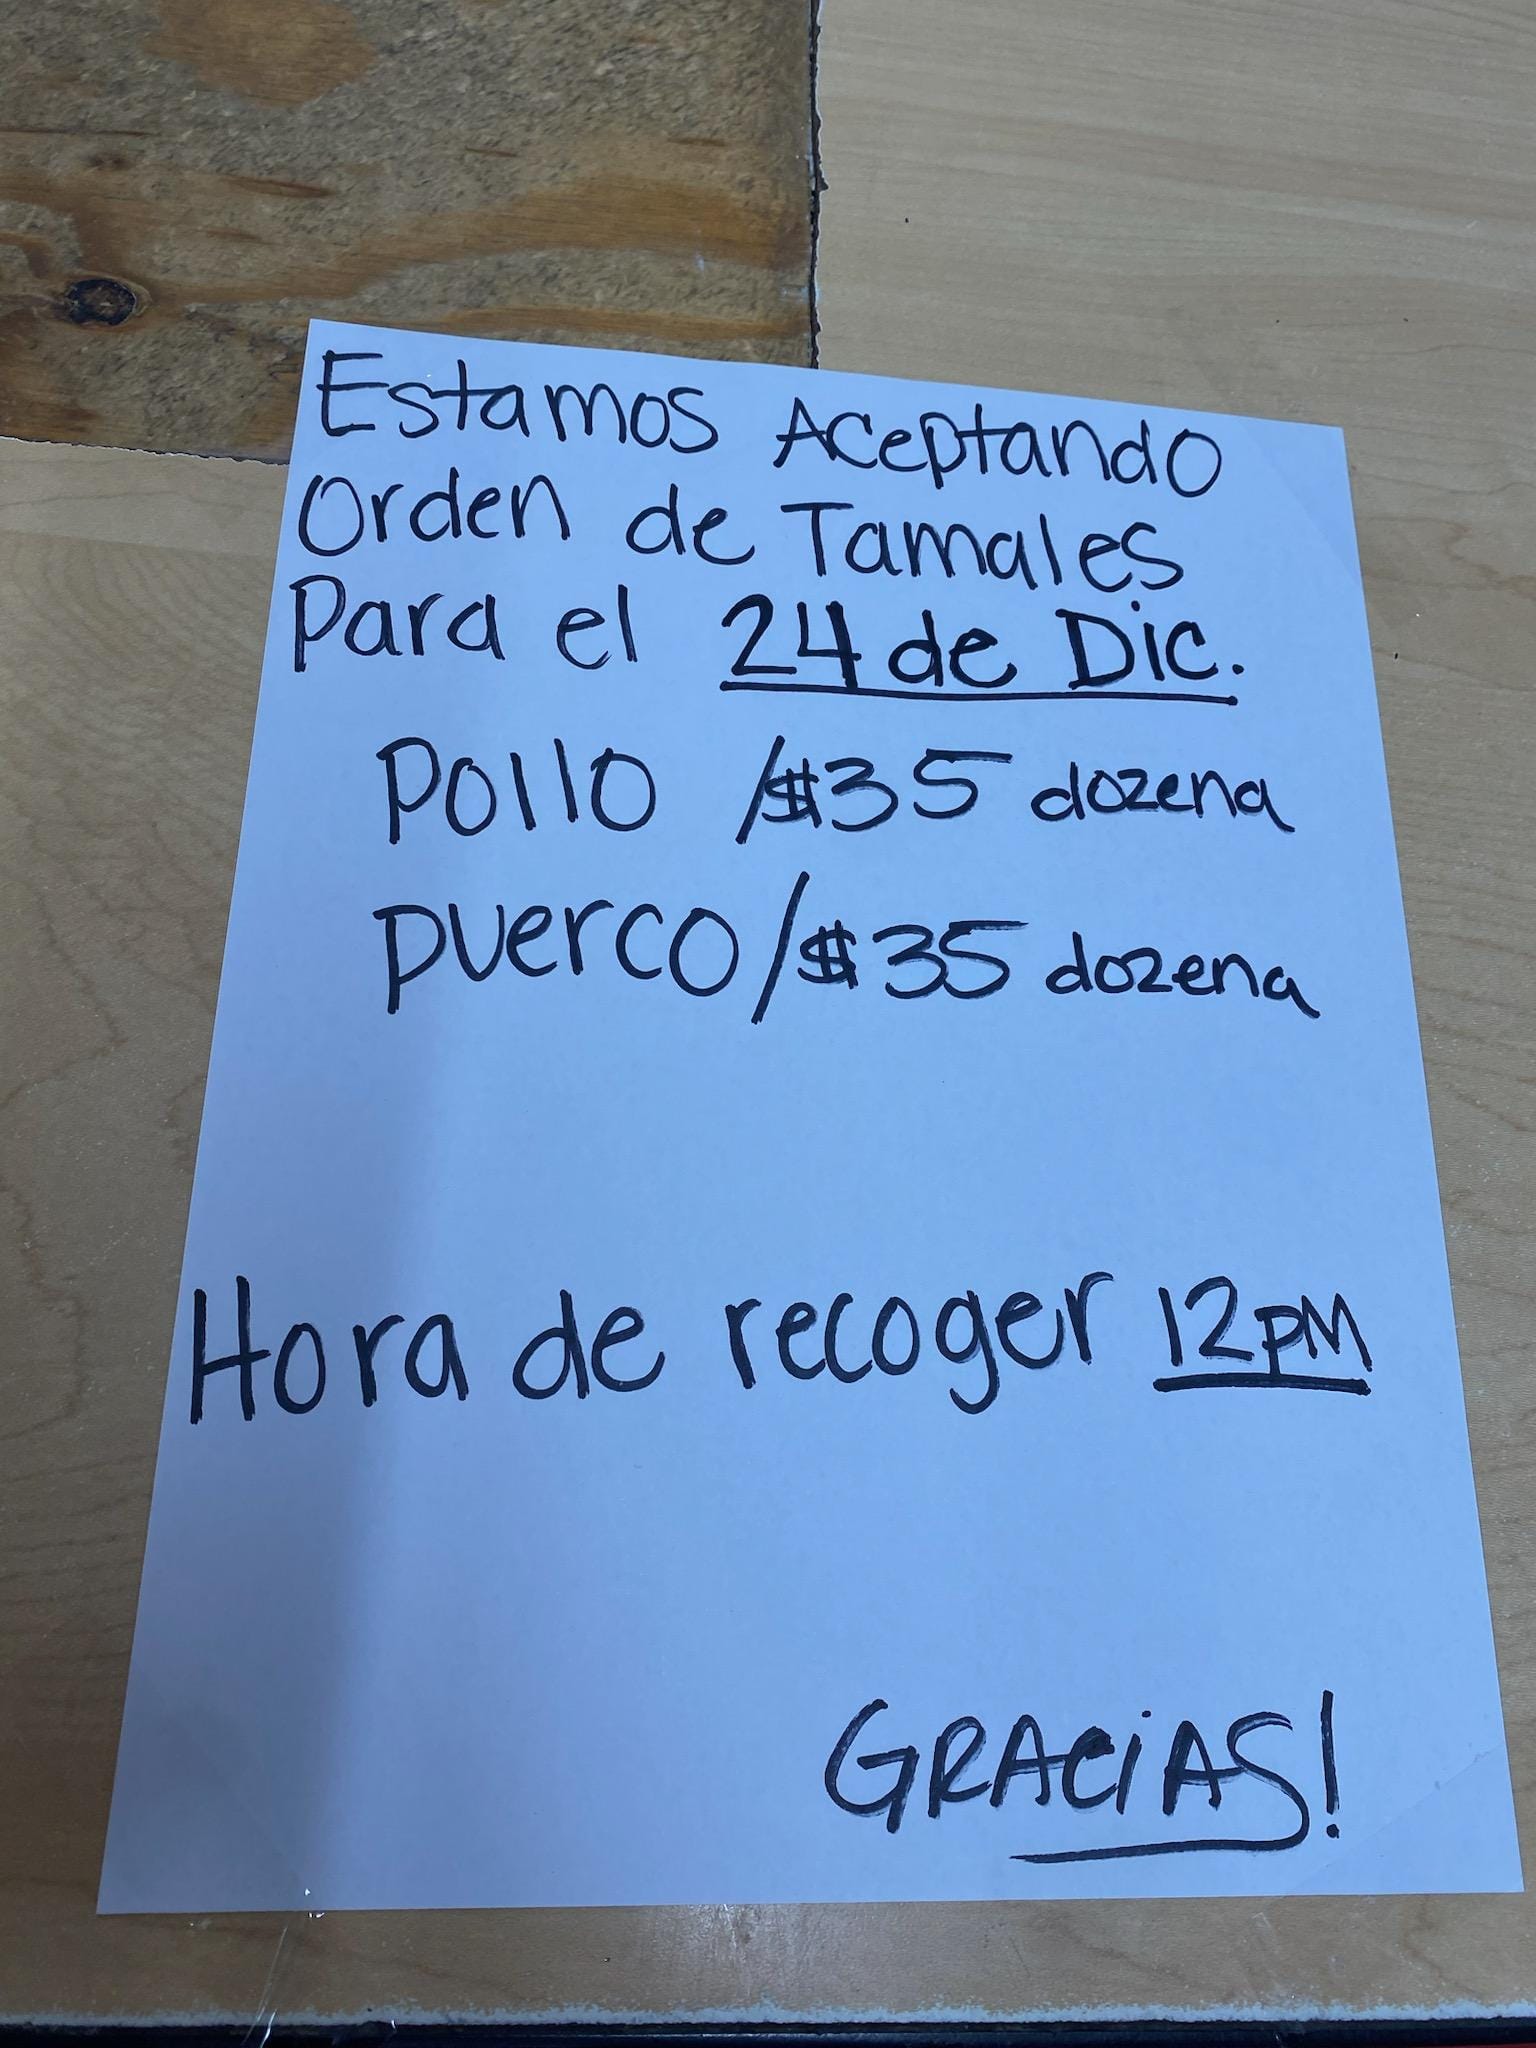 Estamos Aceptando
Orden de Tamales
Para el 24 de Dic.
Pollo /$35 dozena
puerco/$35 dozena
Hora de recoger 12pm
GRACiAS!